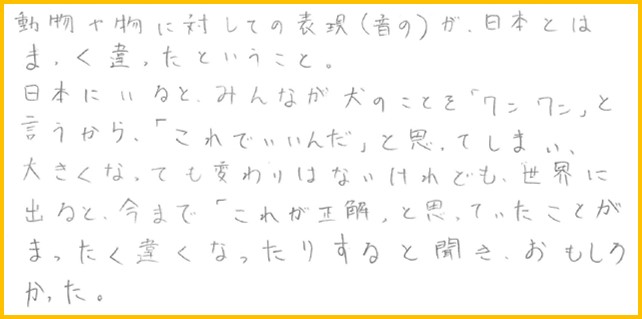 動物や物に対しての表現(音の)が、日本とは
まったく違ったということ。
日本にいると、みんなが犬のことを「ワンワン」と
言うから、「これでいいんだ」と思ってしまい、
大きくなっても変わりはないけれども、世界に
出ると、今まで「これが正解」と思っていたことが
まったく違くなったりすると聞き、おもしろ
かった。